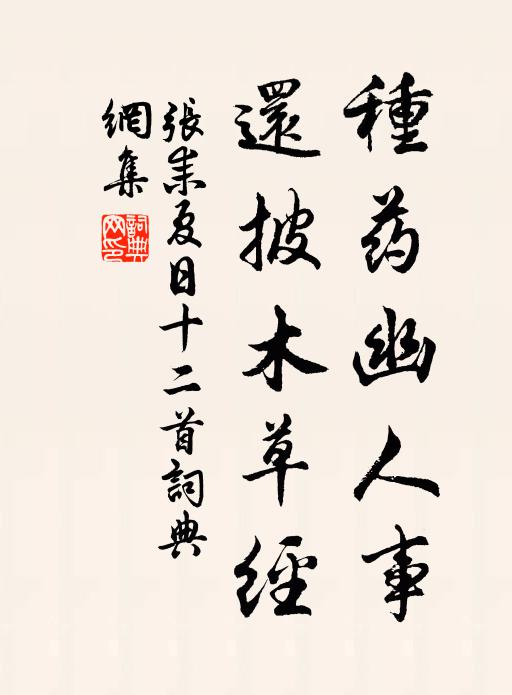 種药幽人事
還披木草經
張耒夏日十二首詞典
網集
詞典
网印